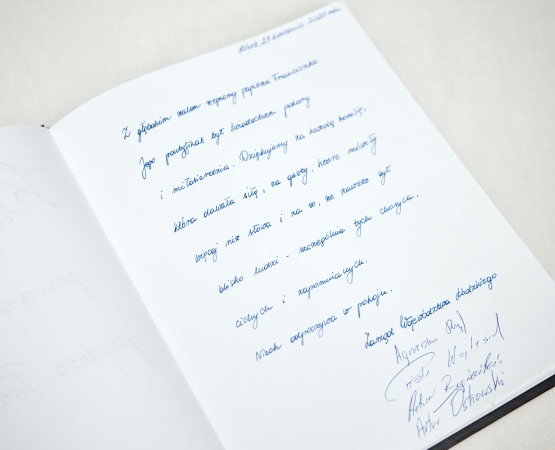 Łódź, 23 kwietnia 2025 roku
Z głębokim żalem żegnamy papieża Franciszka.
Jego pontyfikat był świadectwem pokory
i miłosierdzia. Dziękujemy za każdą homilię,
która dawała siłę, za gesty, które mówiły
więcej niż słowa i za to, że zawsze był
blisko ludzi - szczególnie tych chorych,
cichych i zapomnianych.
Niech odpoczywa w pokoju.
Zarząd Województwa Łódzkiego
Agnieszka
Piotr
Artur
Artur Ostrowski